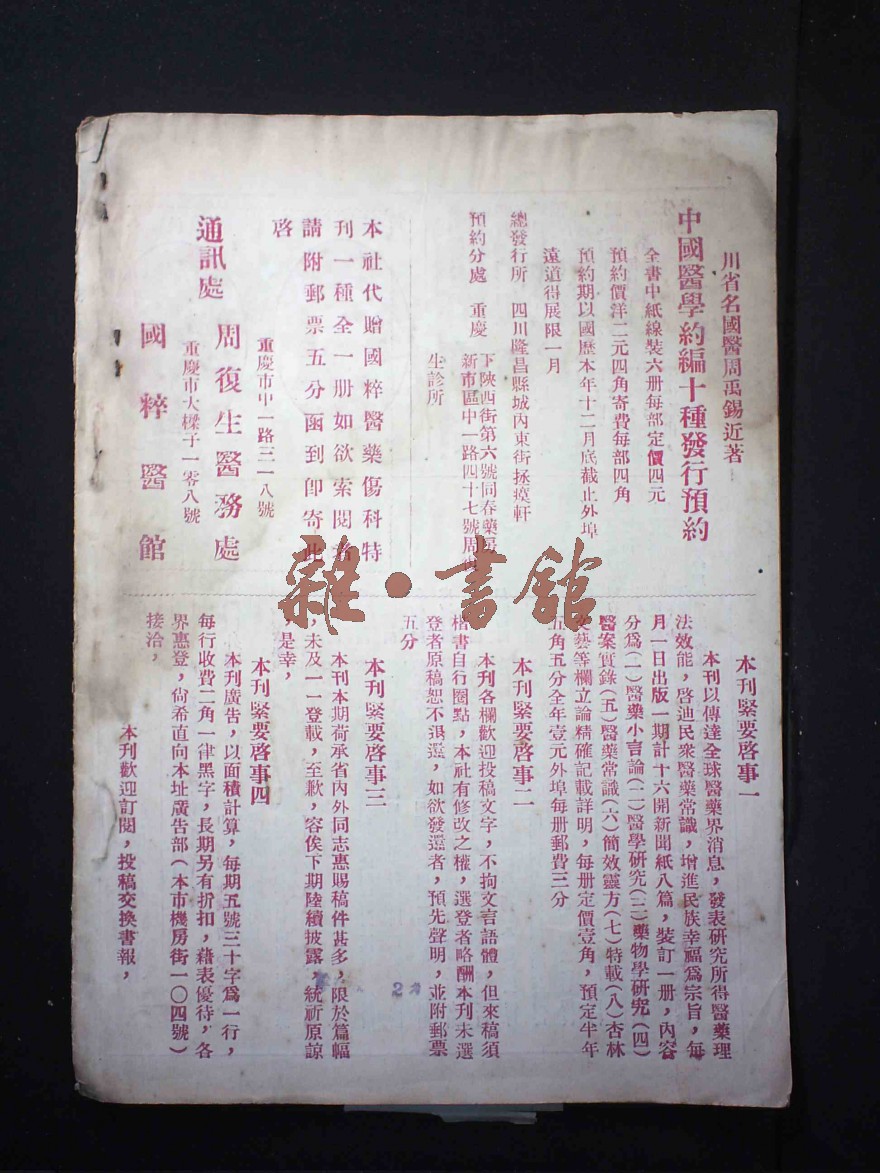 川省名國醫周禹錫近著
中國醫學約編十種發行預約
全書中紙線裝六册每部定價四元
預約價洋二元四角寄費每部四角
預約期以國歷本年十二月底截止外埠
遠道得展限一月
總發行所 四川隆昌縣城內東街拯瘼軒
預約分處 重慶
下陝西街第六號同春藥房
新市區中一路四十七號周
生診所
本社代贈國粹醫藥傷科特
刊一種全一册如欲索閱者
請附郵票五分函到卽寄此
啓
重慶市中一路三一八號
通訊處 周復生醫務處
重慶市大樑子一零八號
國粹醫館
本刊緊要啓事一
本刊以傳達全球醫藥界消息，發表研究所得醫藥理
法效能，啓迪民衆醫藥常識，增進民族幸福爲宗旨，每
月一日出版一期計十六開新聞紙八篇，裝訂一册，內容
分爲（一）醫藥小言論（二）醫學研究（三）藥物學研究（四）
醫案實錄（五）醫藥常識（六）簡效靈方（七）特載（八）杏林
文藝等欄立論精確記載詳明，每册定價壹角，預定半年
五角五分全年壹元外埠每册郵費三分
本刊緊要啓事二
本刊各欄歡迎投稿文字，不拘文言語體，但來稿須
楷書自行圈點，本社有修改之權，選登者略酬本刊未選
登者原稿恕不退還，如欲發還者，預先聲明，並附郵票
五分
本刊緊要啓事三
本刊本期荷承省內外同志惠賜稿件甚多，限於篇幅
，未及一一登載，至歉，容俟下期陸續披露，統祈原諒
，是幸，
本刊緊要啓事四
本刊廣告，以面積計算，每期五號三十字爲一行，
每行收費二角一律黑字，長期另有折扣，藉表優待，各
界惠登，尙希直向本址廣告部（本市機房街一〇四號）
接洽，
本刊歡迎訂閱，投稿交換書報，
雜·書館